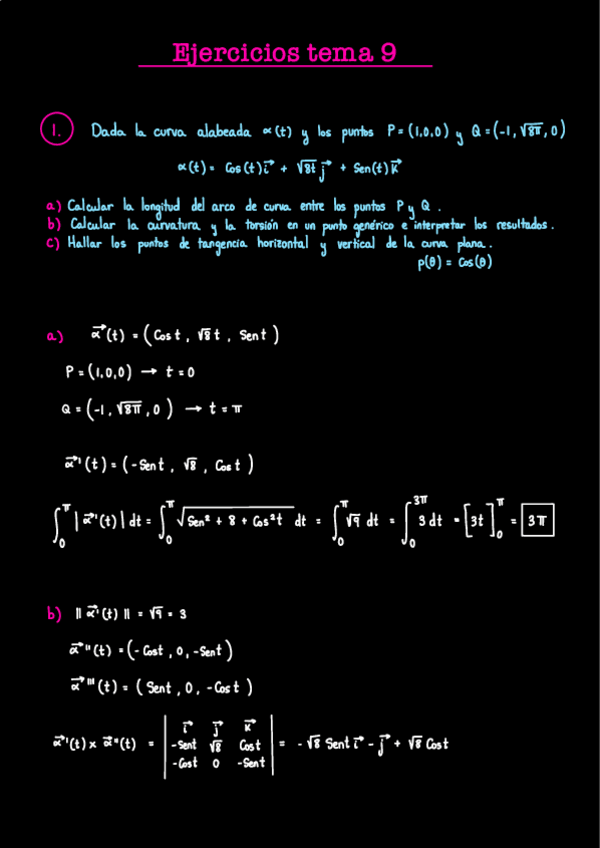 Ejercicios tema 9
1. Dada la curva alabeada α(t) y los puntos P=(1,0,0) y Q=(-1,√8π,0)
α(t) = Cos(t)i⃗ + √8t j⃗ + Sen(t)k⃗
a) Calcular la longitud del arco de curva entre los puntos P y Q.
b) Calcular la curvatura y la torsión en un punto genérico e interpretar los resultados.
c) Hallar los puntos de tangencia horizontal y vertical de la curva plana.
p(θ) = Cos(θ)
a) α⃗(t) = (Cos t, √8 t, Sen t)
P = (1,0,0) → t = 0
Q = (-1, √8π, 0) → t = π
α⃗'(t) = (-Sen t, √8, Cos t)
∫₀^π |α⃗'(t)| dt = ∫₀^π √(Sen² + 8 + Cos²t) dt = ∫₀^π √9 dt = ∫₀^3π 3 dt = [3t]₀^π = 3π
b) || α⃗'(t) || = √9 = 3
α⃗''(t) = (-Cos t, 0, -Sen t)
α⃗'''(t) = (Sen t, 0, -Cos t)
α⃗'(t) × α⃗''(t) = | i⃗ j⃗ k⃗ | = -√8 Sen t i⃗ - j⃗ + √8 Cos t
-Sen t √8 Cos t
-Cos t 0 -Sen t